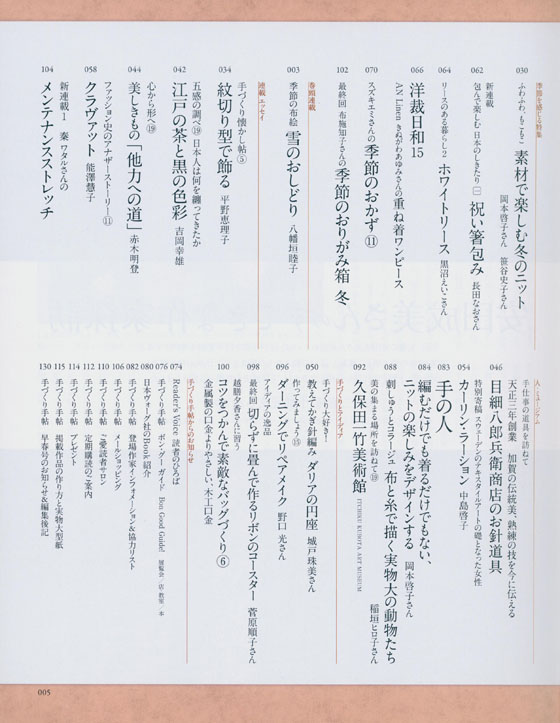 季節を感じる特集
030
ふわふわ、もこもこ 素材で楽しむ冬のニット
岡本啓子さん 笹谷史子さん
新連載
062
包んで楽しむ 日本のしきたり㊀ 祝い箸包み 長田なおさん
064
リースのある暮らし2 ホワイトリース 黒沼えいこさん
066
洋裁日和15
AN Linen きぬがわあゆみさんの重ね着ワンピース
070
スズキエミさんの季節のおかず⑪
102
最終回 布施知子さんの季節のおりがみ箱 冬
巻頭連載
003
季節の布絵 雪のおしどり 八幡垣睦子
連載 エッセイ
手づくり懐かし帖⑤
034
紋切り型で飾る 平野恵理子
五感の調べ⑲ 日本人は何を纏ってきたか
042
江戸の茶と黒の色彩 吉岡幸雄
心から形へ⑲
044
美しきもの「他力への道」 赤木明登
ファッション史のアナザーストーリー⑪
058
クラヴァット 能澤慧子
新連載1 秦ワタルさんの
104
メンテナンスストレッチ
人・ミュージアム
手仕事の道具を訪ねて
天正三年創業 加賀の伝統美、熟練の技を今に伝える
046
目細八郎兵衛商店のお針道具
特別寄稿 スウェーデンのテキスタイルアートの礎となった女性
054
カーリン・ラーション 中島啓子
083
手の人
084
編むだけでも着るだけでもない、
ニットの楽しみをデザインする 岡本啓子さん
088
刺しゅうとコラージュ 布と糸で描く実物大の動物たち
稲垣ヒロ子さん
美の集まる場所を訪ねて⑲
092
久保田一竹美術館 ITCHIKU KUBOTA ART MUSEUM
手づくりとアイディア
手づくり大好き!
050
教えてかぎ針編み ダリアの円座 城戸珠美さん
作ってみましょう⑮
096
ダーニングでリペアメイク 野口光さん
アイディアの逸品
098
最終回 切らずに畳んで作るリボンのコースター 菅原順子さん
越膳夕香さんに習う
100
コツをつかんで素敵なバッグづくり⑥
金属製の口金よりやさしい、木工口金
手づくり手帖からのお知らせ
074
Reader's Voice 読者のひろば
076
手づくり手帖 ボン・グー ガイド Bon Good Guide! 展覧会/店/教室/本
080
日本ヴォーグ社のBook紹介
082
手づくり手帖 登場作家インフォメーション&協力リスト
106
手づくり手帖 メールショッピング
110
手づくり手帖 ご愛読者サロン
112
手づくり手帖 定期購読のご案内
114
手づくり手帖 プレゼント
115
手づくり手帖 掲載作品の作り方と実物大型紙
130
手づくり手帖 早春号のお知らせ&編集後記
005